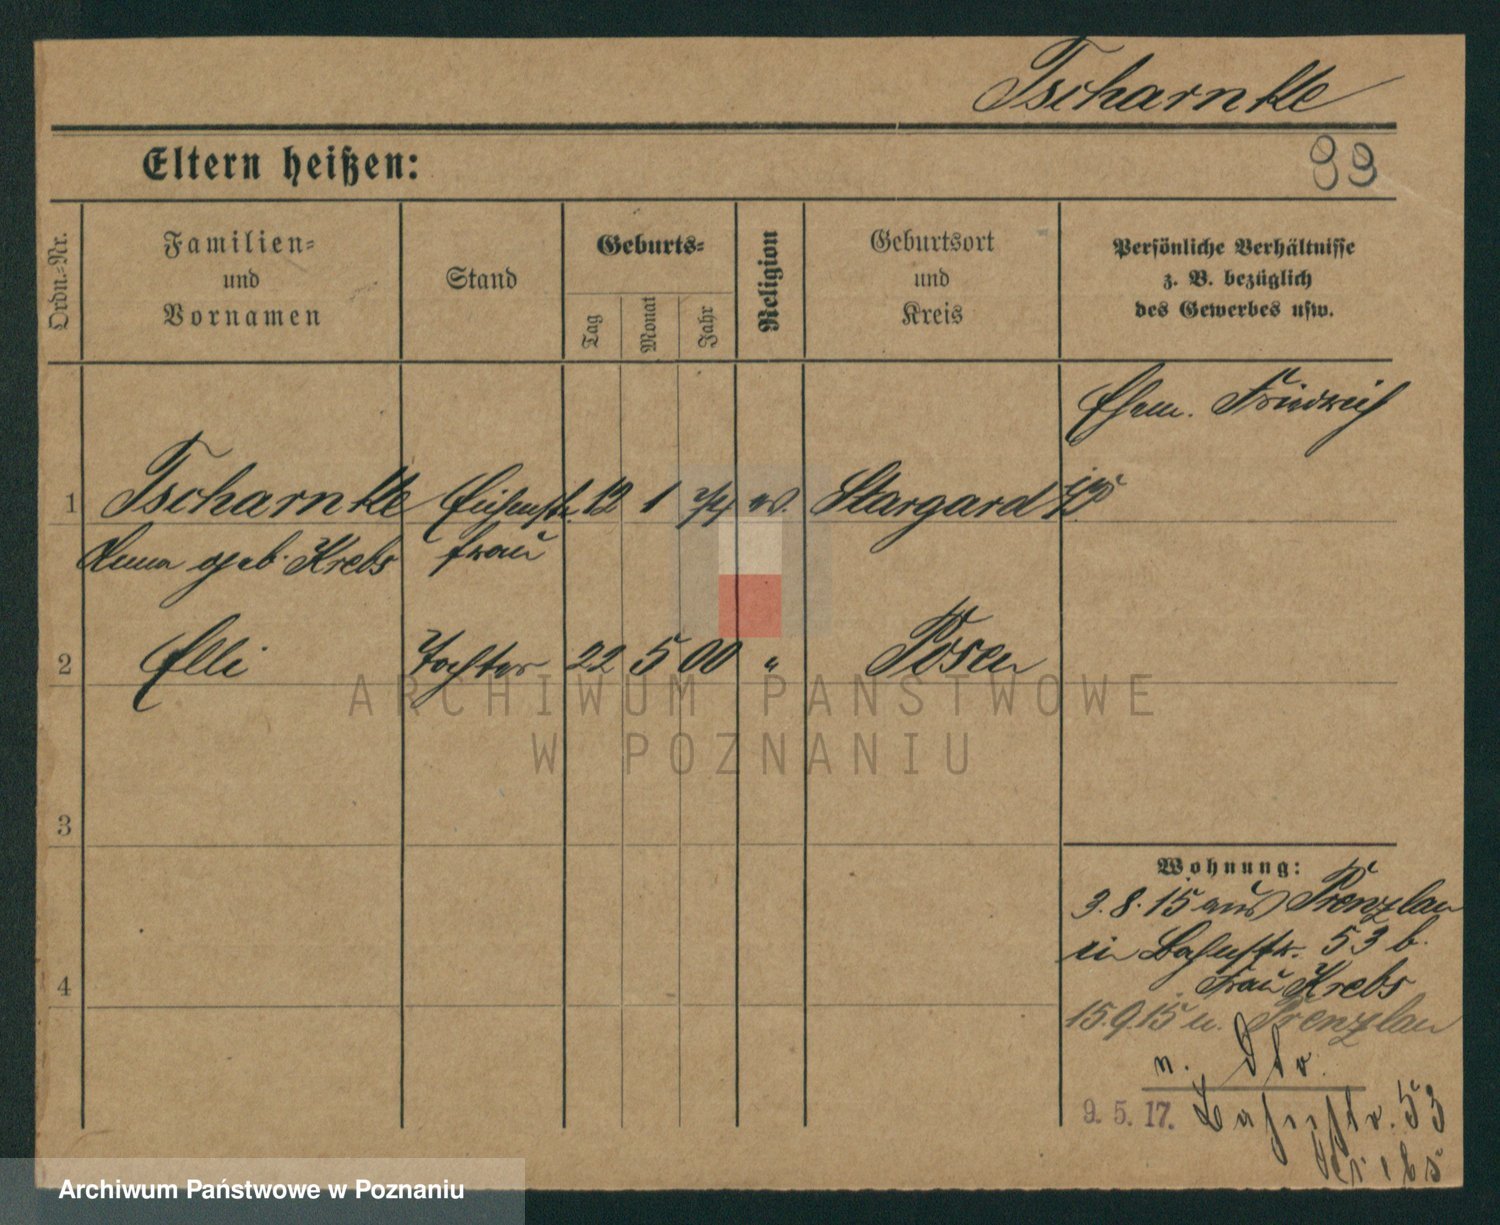 Tscharnkte
Eltern heißen:
99
Ordn.-Nr.
Familien-
und
Vornamen
Stand
Geburts-
Tag
Monat
Jahr
Religion
Geburtsort
und
Kreis
Persönliche Verhältnisse
z. B. bezüglich
des Gewerbes usw.
Ehem. Friedrich
1 Tscharnkte 12 1 74 ev. Stargard i/P
Anna geb. Krebs frau
2 Elli Tochter 22 5 00 " Posen
3
4
Wohnung:
3.8.15 aus Prenzlau
in Bahnstr. 53 b.
Frau Krebs
15.9.15 n. Prenzlau
n.
9. 5. 17. Bahnstr. 53
Krebs
ARCHIWUM PAŃSTWOWE
W POZNANIU
Archiwum Państwowe w Poznaniu